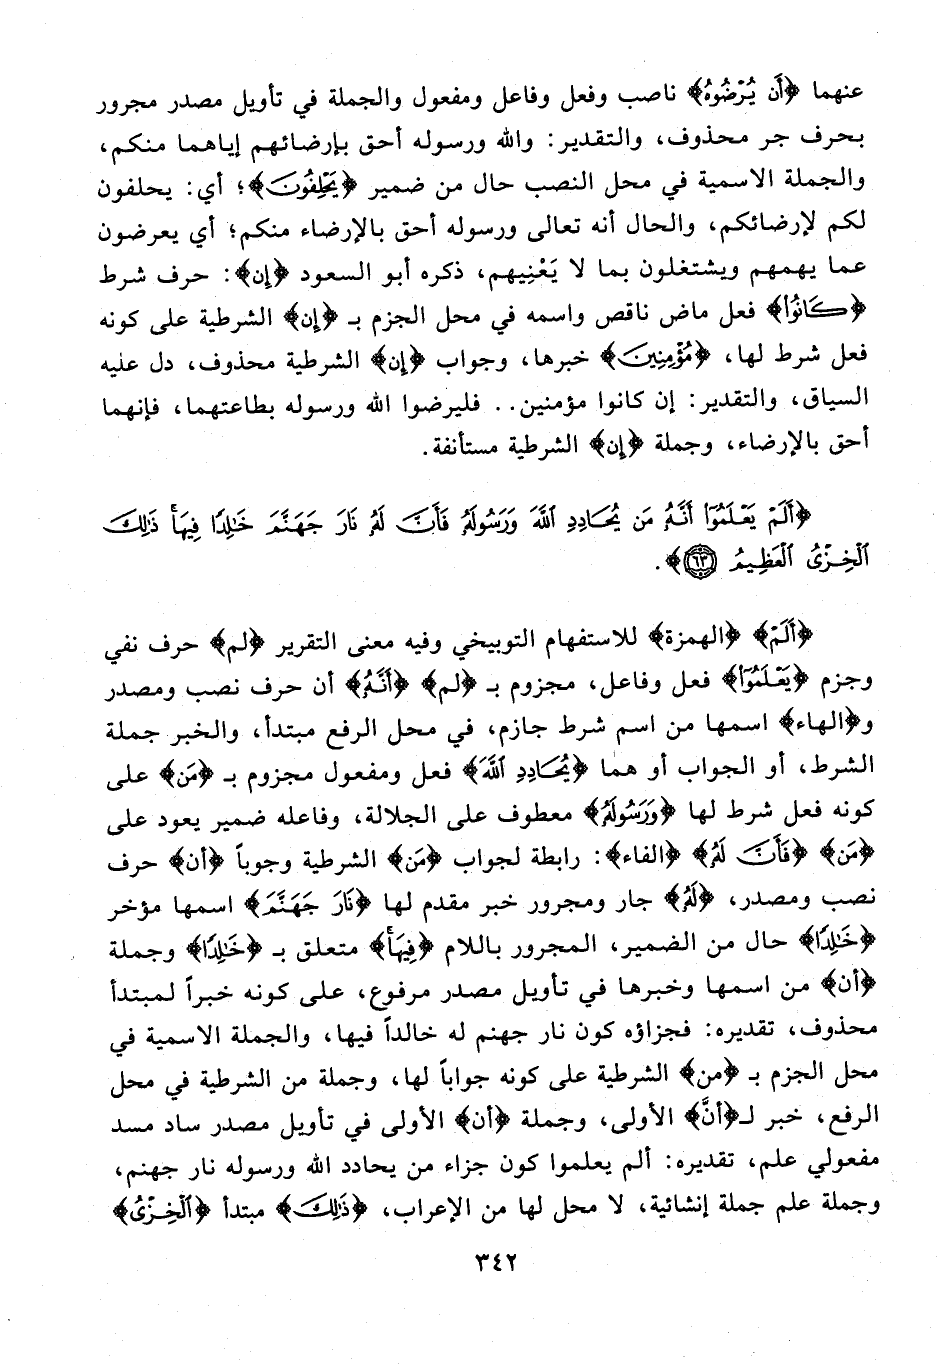 عنهما ﴿أَن يُرْضُوهُ﴾ ناصب وفعل وفاعل ومفعول والجملة في تأويل مصدر مجرور
بحرف جر محذوف، والتقدير: والله ورسوله أحق بإرضائهم إياهما منكم،
والجملة الاسمية في محل النصب حال من ضمير ﴿يَحْلِفُونَ﴾؛ أي: يحلفون
لكم لإرضائكم، والحال أنه تعالى ورسوله أحق بالإرضاء منكم؛ أي يعرضون
عما يهمهم ويشتغلون بما لا يَعْنِيهم، ذكره أبو السعود ﴿إن﴾: حرف شرط
﴿كَانُوا۟﴾ فعل ماض ناقص واسمه في محل الجزم بـ ﴿إن﴾ الشرطية على كونه
فعل شرط لها، ﴿مُؤْمِنِينَ﴾ خبرها، وجواب ﴿إن﴾ الشرطية محذوف، دل عليه
السياق، والتقدير: إن كانوا مؤمنين.. فليرضوا الله ورسوله بطاعتهما، فإنهما
أحق بالإرضاء، وجملة ﴿إن﴾ الشرطية مستأنفة.
﴿أَلَمْ يَعْلَمُوٓا۟ أَنَّهُۥ مَن يُحَادِدِ ٱللَّهَ وَرَسُولَهُۥ فَأَنَّ لَهُۥ نَارَ جَهَنَّمَ خَـٰلِدًا فِيهَا ۚ ذَٰلِكَ
ٱلْخِزْىُ ٱلْعَظِيمُ ٦٣﴾.
﴿أَلَمْ﴾ ﴿الهمزة﴾ للاستفهام التوبيخي وفيه معنى التقرير ﴿لم﴾ حرف نفي
وجزم ﴿يَعْلَمُوٓا۟﴾ فعل وفاعل، مجزوم بـ ﴿لم﴾ ﴿أَنَّهُۥ﴾ أن حرف نصب ومصدر
و﴿الهاء﴾ اسمها من اسم شرط جازم، في محل الرفع مبتدأ، والخبر جملة
الشرط، أو الجواب أو هما ﴿يُحَادِدِ ٱللَّهَ﴾ فعل ومفعول مجزوم بـ ﴿مَن﴾ على
كونه فعل شرط لها ﴿وَرَسُولَهُۥ﴾ معطوف على الجلالة، وفاعله ضمير يعود على
﴿مَن﴾ ﴿فَأَنَّ لَهُۥ﴾ ﴿الفاء﴾: رابطة لجواب ﴿مَن﴾ الشرطية وجوباً ﴿أن﴾ حرف
نصب ومصدر، ﴿لَهُۥ﴾ جار ومجرور خبر مقدم لها ﴿نَارَ جَهَنَّمَ﴾ اسمها مؤخر
﴿خَـٰلِدًا﴾ حال من الضمير، المجرور باللام ﴿فِيهَا ۚ﴾ متعلق بـ ﴿خَـٰلِدًا﴾ وجملة
﴿أن﴾ من اسمها وخبرها في تأويل مصدر مرفوع، على كونه خبراً لمبتدأ
محذوف، تقديره: فجزاؤه كون نار جهنم له خالداً فيها، والجملة الاسمية في
محل الجزم بـ ﴿من﴾ الشرطية على كونه جواباً لها، وجملة من الشرطية في محل
الرفع، خبر لـ﴿أنَّ﴾ الأولى، وجملة ﴿أن﴾ الأولى في تأويل مصدر ساد مسد
مفعولي علم، تقديره: ألم يعلموا كون جزاء من يحادد الله ورسوله نار جهنم،
وجملة علم جملة إنشائية، لا محل لها من الإعراب، ﴿ذَٰلِكَ﴾ مبتدأ ﴿ٱلْخِزْىُ﴾
٣٤٢